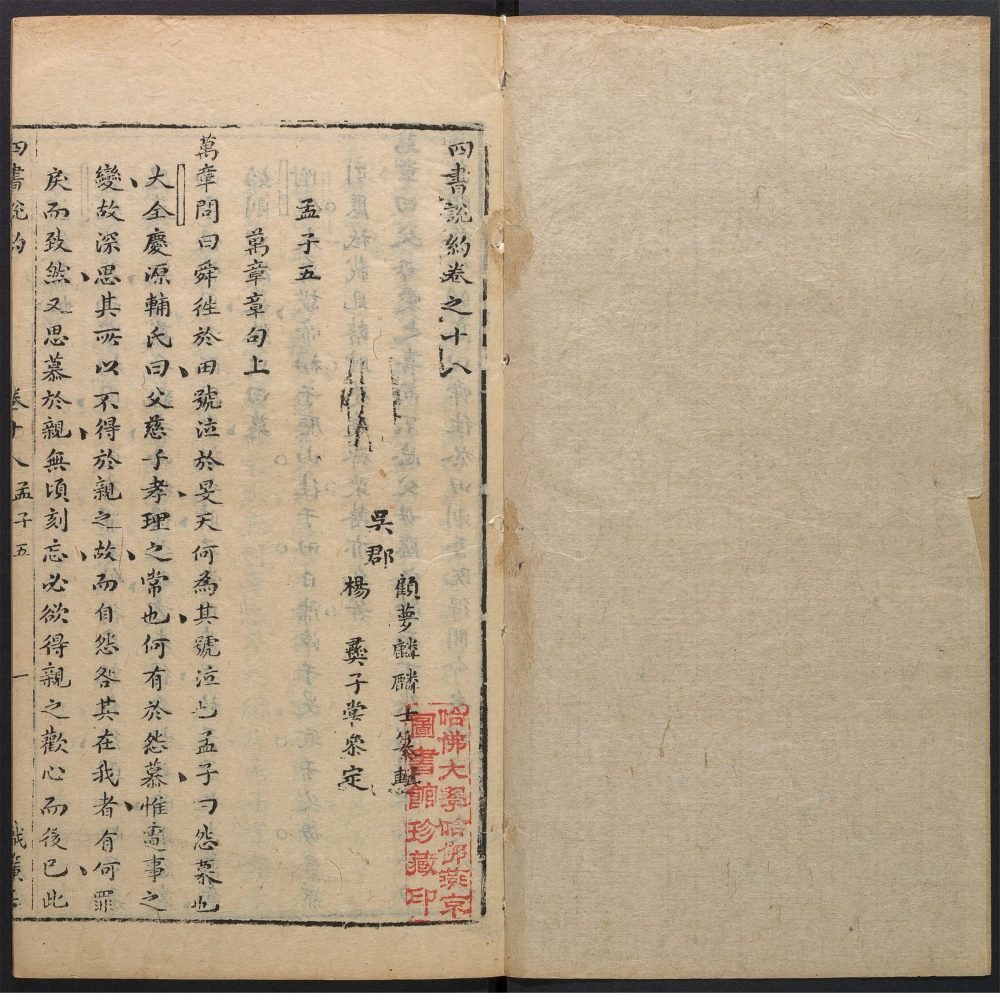 四書說約卷之十八
顧夢麟麟士纂輯
吳郡
楊彝子常參定
孟子五
萬章章句上
萬章問曰舜徃於田號泣於旻天何為其號泣也孟子曰怨慕也
大全慶源輔氏曰父慈子孝理之常也何有於怨慕惟處事之
變故深思其所以不得於親之故而自怨咎其在我者有何罪
戾而致然又思慕於親無頃刻忘必欲得親之歡心而後已此
四書說約 卷十八孟子五 一
哈佛大學哈佛燕京
圖書館珍藏印